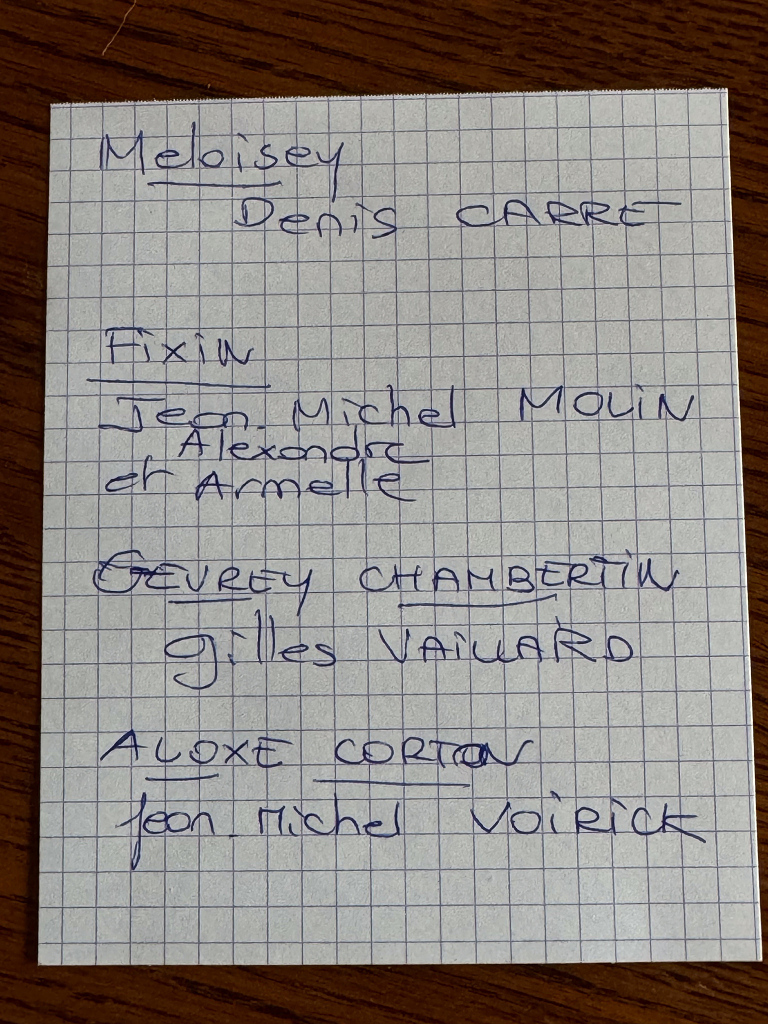 Meloisey
Denis CARRE
FixiN
Jean-Michel MOLiN
Alexandre
et Armelle
GEVREY CHAMBERTiN
gilles VAiLLARD
ALOXE CORTON
Jean-Michel VOiRiCK